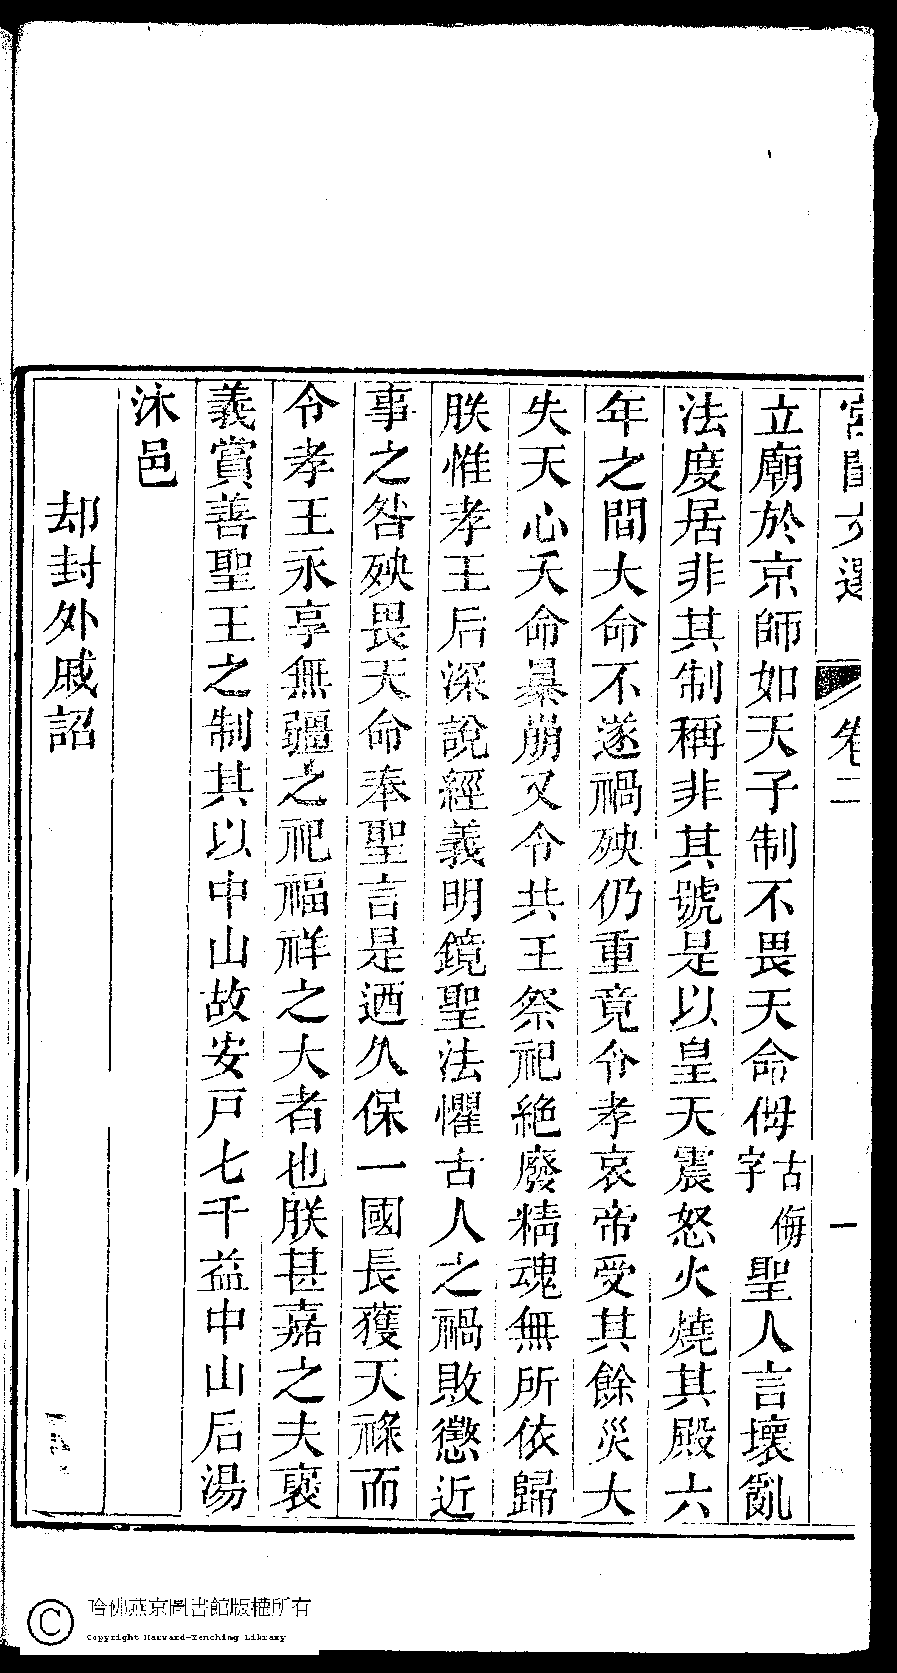 宮閨文選 卷二 一
立廟於京師如天子制不畏天命侮古侮字聖人言壞亂
法度居非其制稱非其號是以皇天震怒火燒其殿六
年之間大命不遂禍殃仍重竟令孝哀帝受其餘災大
失天心夭命暴崩又令共王祭祀絶廢精魂無所依歸
朕惟孝王后深說經義明鏡聖法懼古人之禍敗懲近
事之咎殃畏天命奉聖言是迺久保一國長獲天祿而
令孝王永享無疆之祀福祥之大者也朕甚嘉之夫襃
義賞善聖王之制其以中山故安戸七千益中山后湯
沐邑
却封外戚詔
哈佛燕京圖書館版權所有
Copyright Harvard-Yenching Library